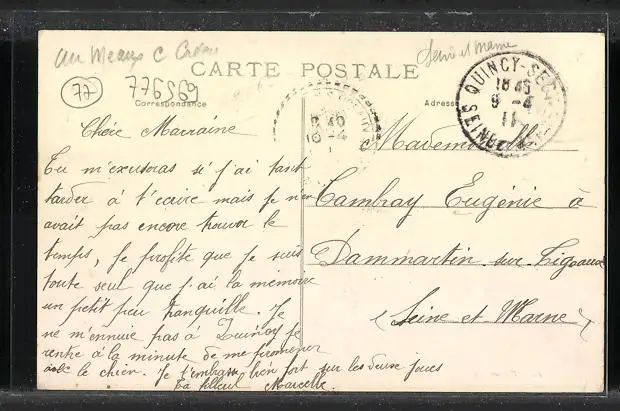 au Meaux C Crécy
Seine et Marne
CARTE POSTALE
77
776569
Correspondance
Adresse
QUINCY-SEGY
SEINE-ET-MARNE
18 45
9 -4
11
Chère Marraine
Tu m'excuseras si j'ai tant
tarder à t'écrire mais je n'en
avait pas encore trouver le
temps, je profite que je suis
toute seul que j'ai la mémoire
un petit peu tranquille. Je
ne m'ennuie pas à Quincy je
rentre à la minute de me promener
avec le chien. Je t'embrasse bien fort sur les deux joues
Ta filleul Marcelle
Mademoiselle
Cambray Eugénie à
Dammartin-sur-Tigeaux
(Seine et Marne)